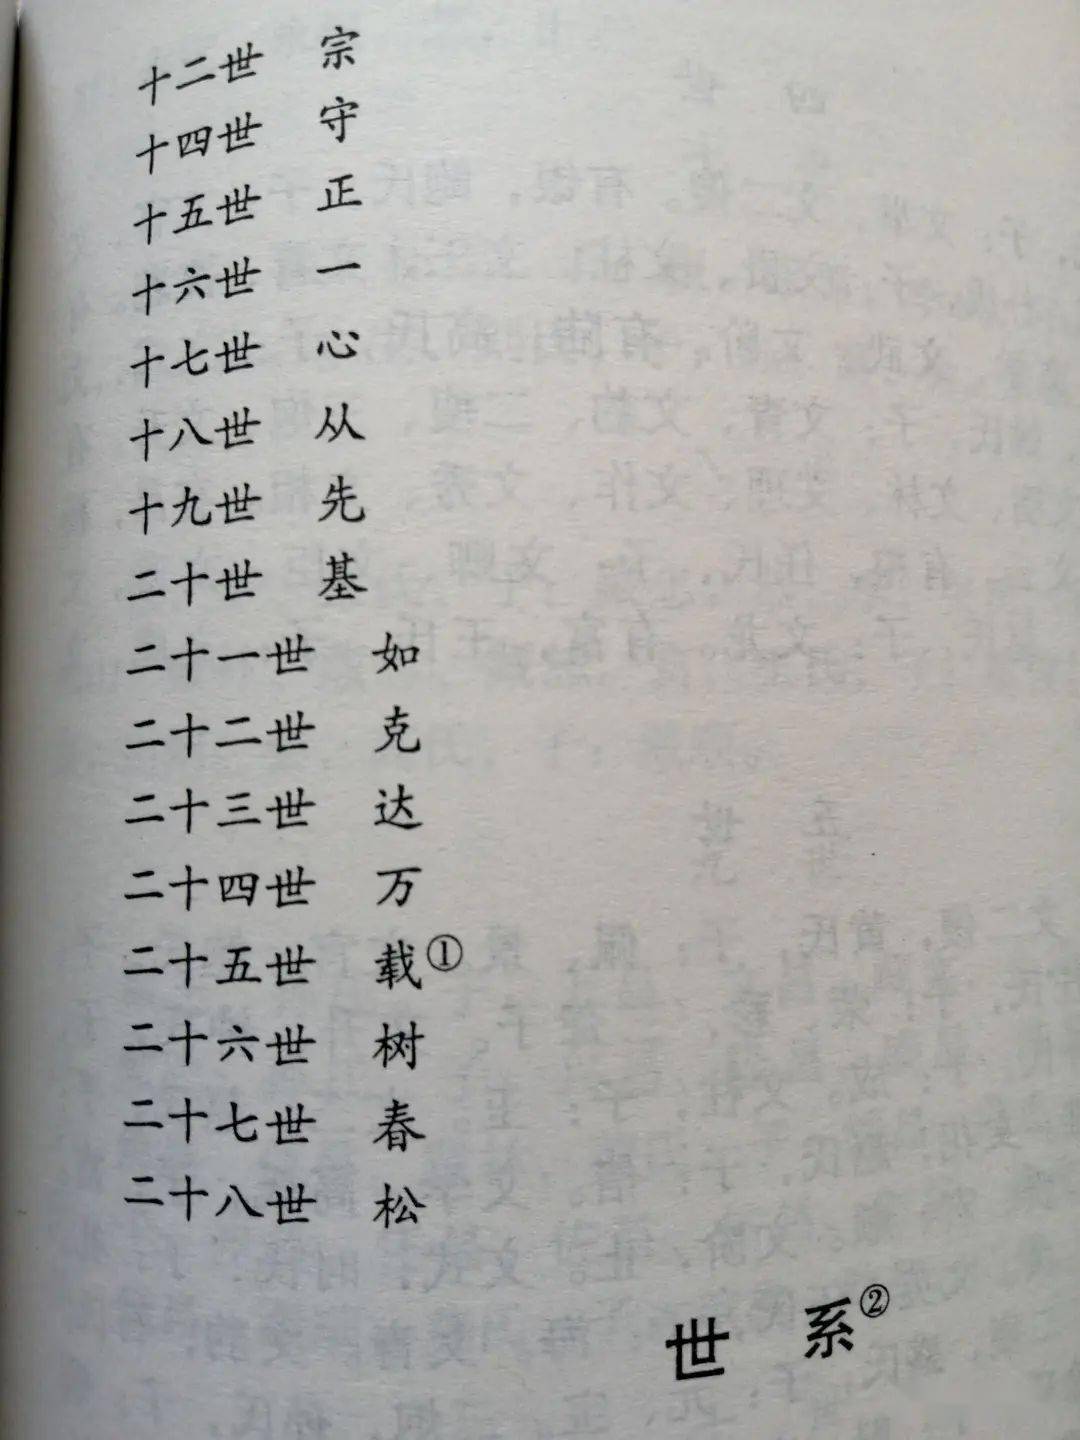 十二世 宗
十四世 守
十五世 正
十六世 一
十七世 心
十八世 从
十九世 先
二十世 基
二十一世 如
二十二世 克
二十三世 达
二十四世 万
二十五世 载①
二十六世 树
二十七世 春
二十八世 松
世 系②